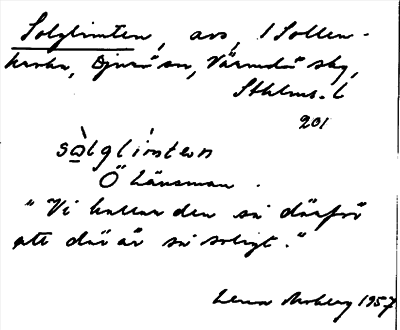 Solglimten, avs, i Sollen-
kroka, Djurö sn, Värmdö skg,
Sthlms. l
201
sòlglímten
Ö Länsman.
"Vi kallar den så därför
att där är så soligt."
Lena Moberg 1957